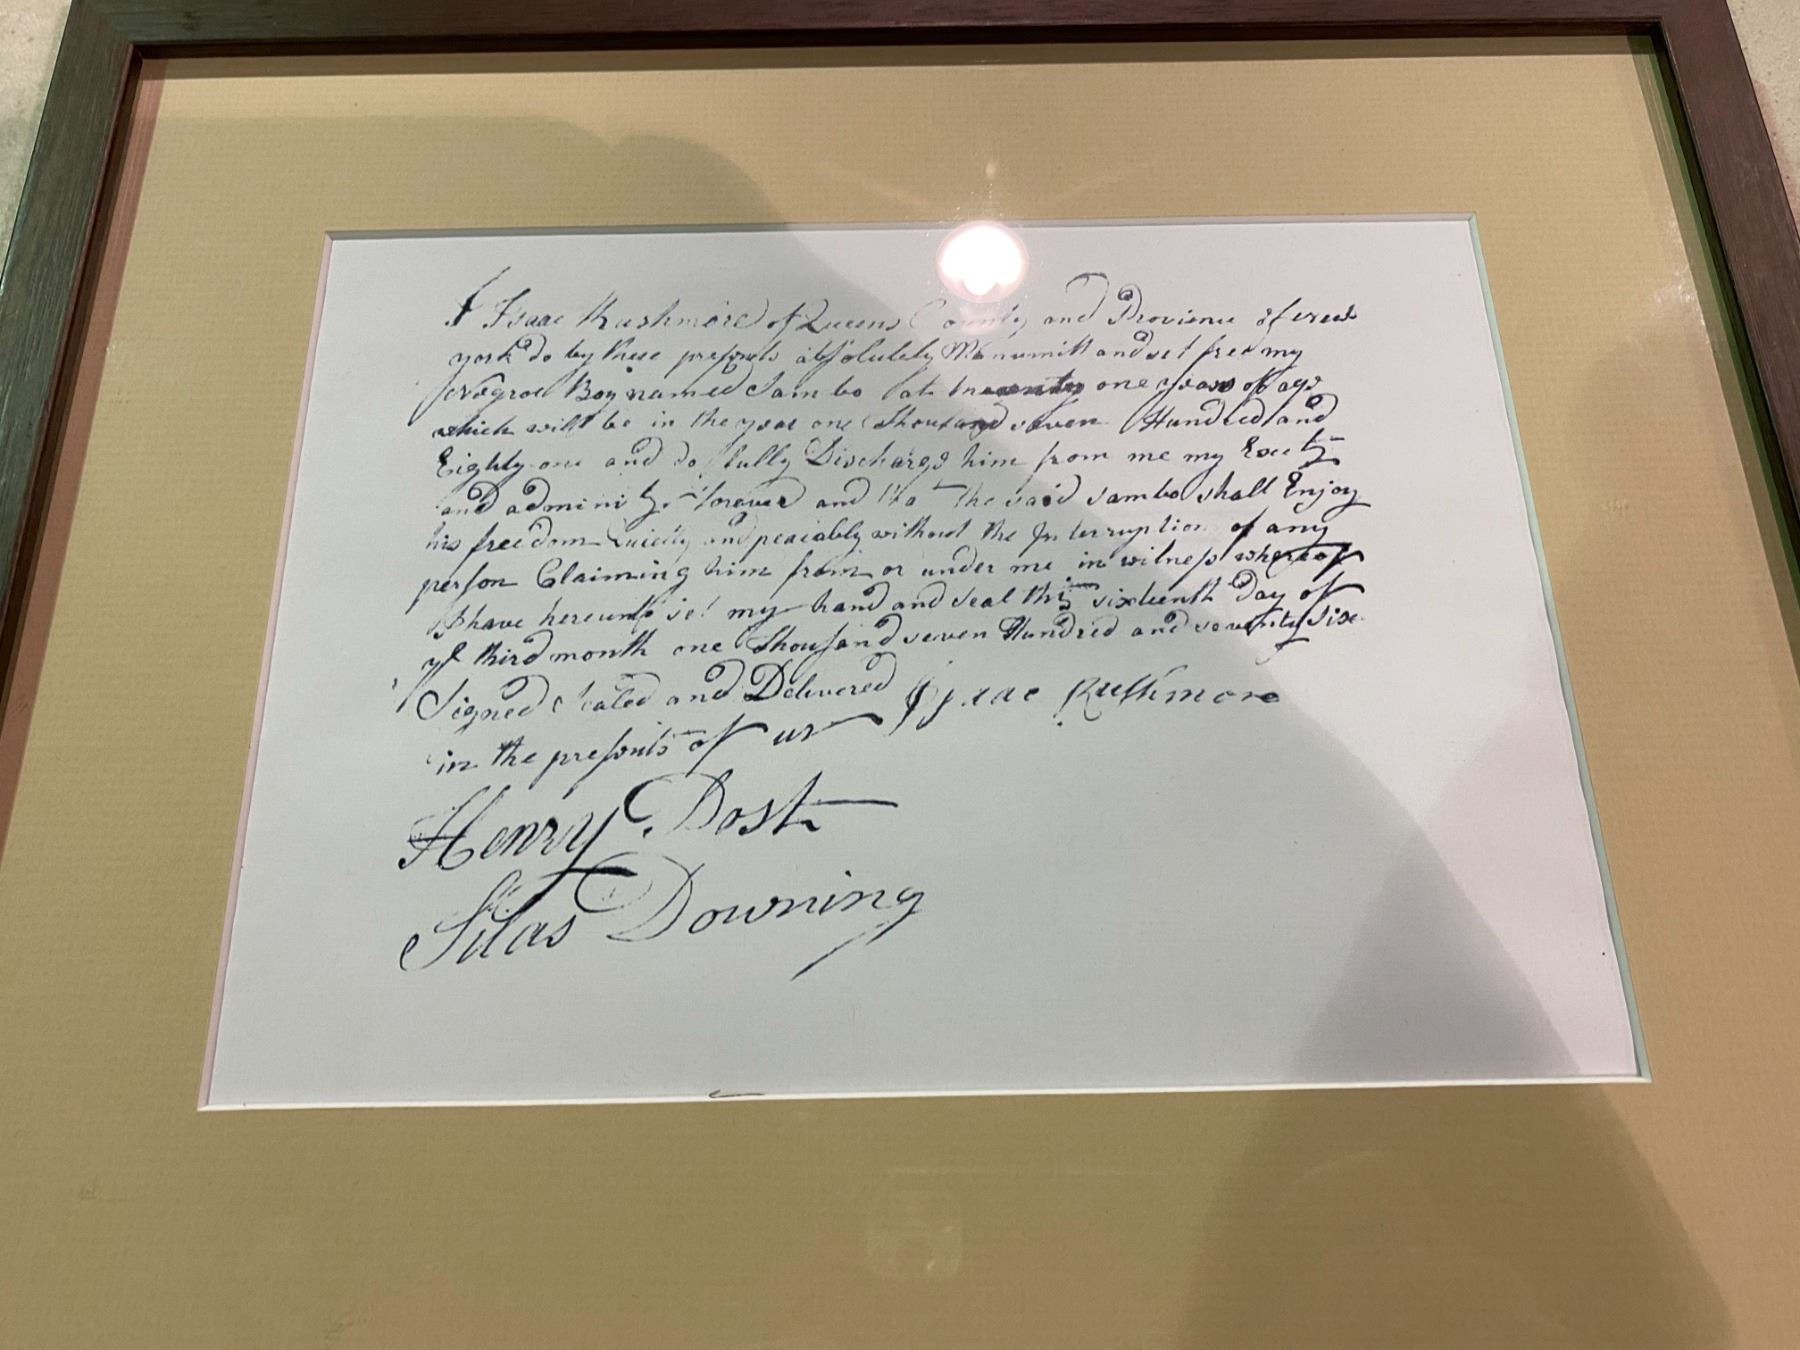 I Isaac Rushmore of Queens County and Province of new
york do by these presents absolutely Manumitt and set free my
Negroe Boy named Sambo (at twenty one years of age
which will be in the year one thousand seven Hundred and
Eighty one and do fully Discharge him from me my
and forever and the said Sambo shall Enjoy
his freedom Quietly and peaciably without the Interruption of any
person Claiming him from or under me in witness whereof
I have hereunto set my hand and seal this sixteenth day of
ye third month one thousand seven Hundred and seventy six
Signed Sealed and Delivered Isaac Rushmore
in the presents of us
Henry Post
Silas Downing